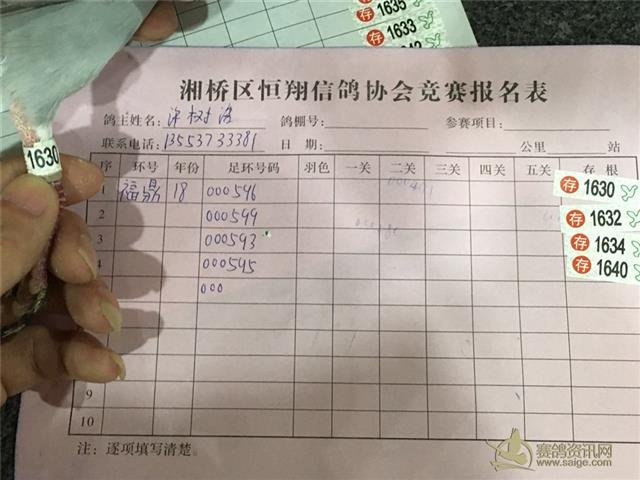 1635
存 1633
1642
湘桥区恒翔信鸽协会竞赛报名表
鸽主姓名: 许树 鸽棚号: 参赛项目:
联系电话: 13553733381 日 期: 公里 站
1630
序 环号 年份 足环号码 羽色 一关 二关 三关 四关 五关 存根
1 福鼎 18 000546 存 1630
2 000599 存 1632
3 000593 存 1634
4 000545 存 1640
000
9
10
注: 逐项填写清楚。
赛鸽资讯网
www.saige.com